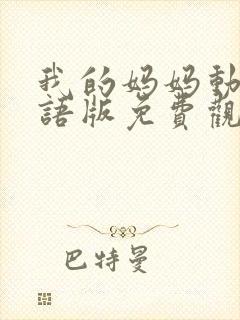 我的妈妈動
語版免費觀
巴特曼